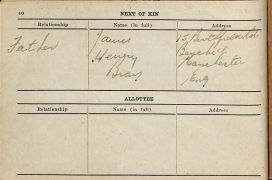 40
NEXT OF KIN
Relationship Name (in full) Address
Father James 13
Henry
Bray Manchester
Eng
ALLOTTEE
Relationship Name (in full) Address